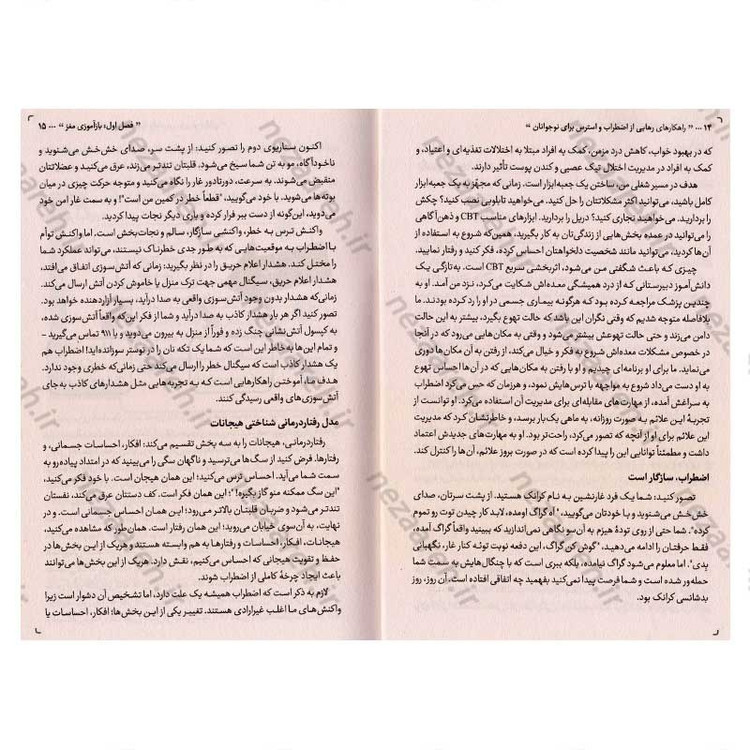 ۱۴ ... " راهکارهای رهایی از اضطراب و استرس برای نوجوانان "
که در بهبود خواب، کاهش درد مزمن، کمک به افراد مبتلا به اختلالات تغذیه‌ای و اعتیاد، و
کمک به افراد در مدیریت اختلال تیک عصبی و کندن پوست تأثیر دارند.
هدف در مسیر شغلی من، ساختن یک جعبه‌ابزار است. زمانی که مجهز به یک جعبه‌ابزار
کامل باشید، می‌توانید اکثر مشکلاتتان را حل کنید. می‌خواهید تابلویی نصب کنید؟ چکش
را بردارید. می‌خواهید نجاری کنید؟ دریل را بردارید. ابزارهای مناسب CBT و ذهن‌آگاهی
را می‌توانید در عمده بخش‌هایی از زندگی‌تان به کار بگیرید، همین‌که شروع به استفاده از
آن‌ها کردید، می‌توانید مانند شخصیت دلخواهتان احساس کرده، فکر کنید و رفتار نمایید.
چیزی که باعث شگفتی من می‌شود، اثربخشی سریع CBT است. به‌تازگی یک
دانش‌آموز دبیرستانی که از درد همیشگی معده‌اش شکایت می‌کرد، نزد من آمد. او به
چندین پزشک مراجعه کرده بود که هرگونه بیماری جسمی در او را رد کرده بودند. ما
بلافاصله متوجه شدیم که وقتی نگران این باشد که حالت تهوع بگیرد، بیشتر به این حالت
دامن می‌زند و حتی حالت تهوعش بیشتر می‌شود و وقتی به مکان‌هایی می‌رود که در آنجا
در خصوص مشکلات معده‌اش شروع به فکر و خیال می‌کند، از رفتن به آن مکان‌ها دوری
می‌نماید. ما برای او برنامه‌ای چیدیم و او با رفتن به مکان‌هایی که در آن‌ها احساس تهوع
به او دست می‌داد شروع به مواجهه با ترس‌هایش نمود، و هرزمان که حس می‌کرد اضطراب
به سراغش آمده، از مهارت‌های مقابله‌ای برای مدیریت آن استفاده می‌کرد. او توانست از
تجربهٔ این علائم به صورت روزانه، به ماهی یک‌بار برسد، و خاطرنشان کرد که مدیریت
این علائم برای او از آنچه که تصور می‌کرد، راحت‌تر بود. او به مهارت‌های جدیدش اعتماد
داشت و مطمئناً توانایی این را پیدا کرده است که در صورت بروز علائم، آن‌ها را کنترل کند.
اضطراب، سازگار است
تصور کنید: شما یک فرد غارنشین به نام کرانک هستید. از پشت سرتان، صدای
خش‌خش می‌شنوید و با خودتان می‌گویید، "آه گراک اومده، لابد کار چیدن توت رو تموم
کرده". شما حتی از روی تودهٔ هیزم به آن‌سو نگاهی نمی‌اندازید که ببینید واقعاً گراک آمده،
فقط حرفتان را ادامه می‌دهید، "گوش کن گراک، این دفعه نوبت توئه کنار غار، نگهبانی
بدی". اما معلوم می‌شود گراک نیامده، بلکه ببری است که با چنگال‌هایش به سمت شما
حمله‌ور شده است و شما فرصت پیدا نمی‌کنید بفهمید چه اتفاقی افتاده است، آن روز، روز
بدشانسی کرانک بود.
" فصل اول: بازآموزی مغز " ... ۱۵
اکنون سناریوی دوم را تصور کنید: از پشت سر، صدای خش‌خش می‌شنوید و
ناخودآگاه، مو به تن شما سیخ می‌شود. قلبتان تندتر می‌زند، عرق می‌کنید و عضلاتتان
منقبض می‌شوند. به سرعت، دورتادور غار را نگاه می‌کنید و متوجه حرکت چیزی در میان
بوته‌ها می‌شوید. با خود می‌گویید، "قطعاً خطر در کمین من است"! و به سمت غار امن خود
می‌دوید، این‌گونه از دست ببر فرار کرده و باری دیگر نجات پیدا کردید.
واکنش ترس به خطر، واکنشی سازگار، سالم و نجات‌بخش است. اما واکنش توأم
با اضطراب به موقعیت‌هایی که به طور جدی خطرناک نیستند، می‌تواند عملکرد شما
را مختل کند. هشدار اعلام حریق را در نظر بگیرید: زمانی که آتش‌سوزی اتفاق می‌افتد،
هشدار اعلام حریق، سیگنال مهمی جهت ترک منزل یا خاموش کردن آتش ارسال می‌کند.
زمانی‌که هشدار بدون وجود آتش‌سوزی واقعی به صدا درآید، بسیار آزاردهنده خواهد بود.
تصور کنید اگر هر بار هشدار کاذب به صدا درآید و شما از فکر این‌که واقعاً آتش‌سوزی شده،
به کپسول آتش نشانی چنگ زده و فوراً از منزل به بیرون می‌دوید و با ۹۱۱ تماس می‌گیرید –
و تمام این‌ها به خاطر این است که شما یک تکه نان را در توستر سوزانده‌اید! اضطراب هم
همین‌طور است که سیگنال خطر را ارسال می‌کند حتی زمانی که خطری وجود ندارد.
هدف ما، آموختن راهکارهایی است که به تجربه‌هایی مثل هشدارهای کاذب به‌جای
آتش‌سوزی‌های واقعی رسیدگی کنند.
مدل رفتاردرمانی شناختی هیجانات
رفتاردرمانی، هیجانات را به سه بخش تقسیم می‌کند: افکار، احساسات جسمانی، و
رفتارها. فرض کنید از سگ‌ها می‌ترسید و ناگهان سگی را می‌بینید که در امتداد پیاده‌رو به
سمت شما می‌آید. احساس ترس می‌کنید؛ این همان هیجان است. با خود فکر می‌کنید،
"این سگ ممکنه منو گاز بگیره"! این همان فکر است. کف دستتان عرق می‌کند، نفستان
تندتر می‌شود و ضربان قلبتان بالاتر می‌رود؛ این همان احساس جسمانی است. و در
نهایت، به آن‌سوی خیابان می‌روید؛ این همان رفتار است. همان‌طور که مشاهده می‌کنید،
هیجانات، افکار، احساسات و رفتارها به هم وابسته هستند و هریک از این بخش‌ها در
حفظ و تقویت هیجاناتی که احساس می‌کنیم، نقش دارد. هریک از این بخش‌ها می‌توانند
باعث ایجاد چرخهٔ کاملی از اضطراب شوند.
لازم به ذکر است که اضطراب همیشه یک علت دارد، اما تشخیص آن دشوار است زیرا
واکنش‌های ما اغلب غیرارادی هستند. تغییر یکی از این بخش‌ها؛ افکار، احساسات یا
nezaareh.ir